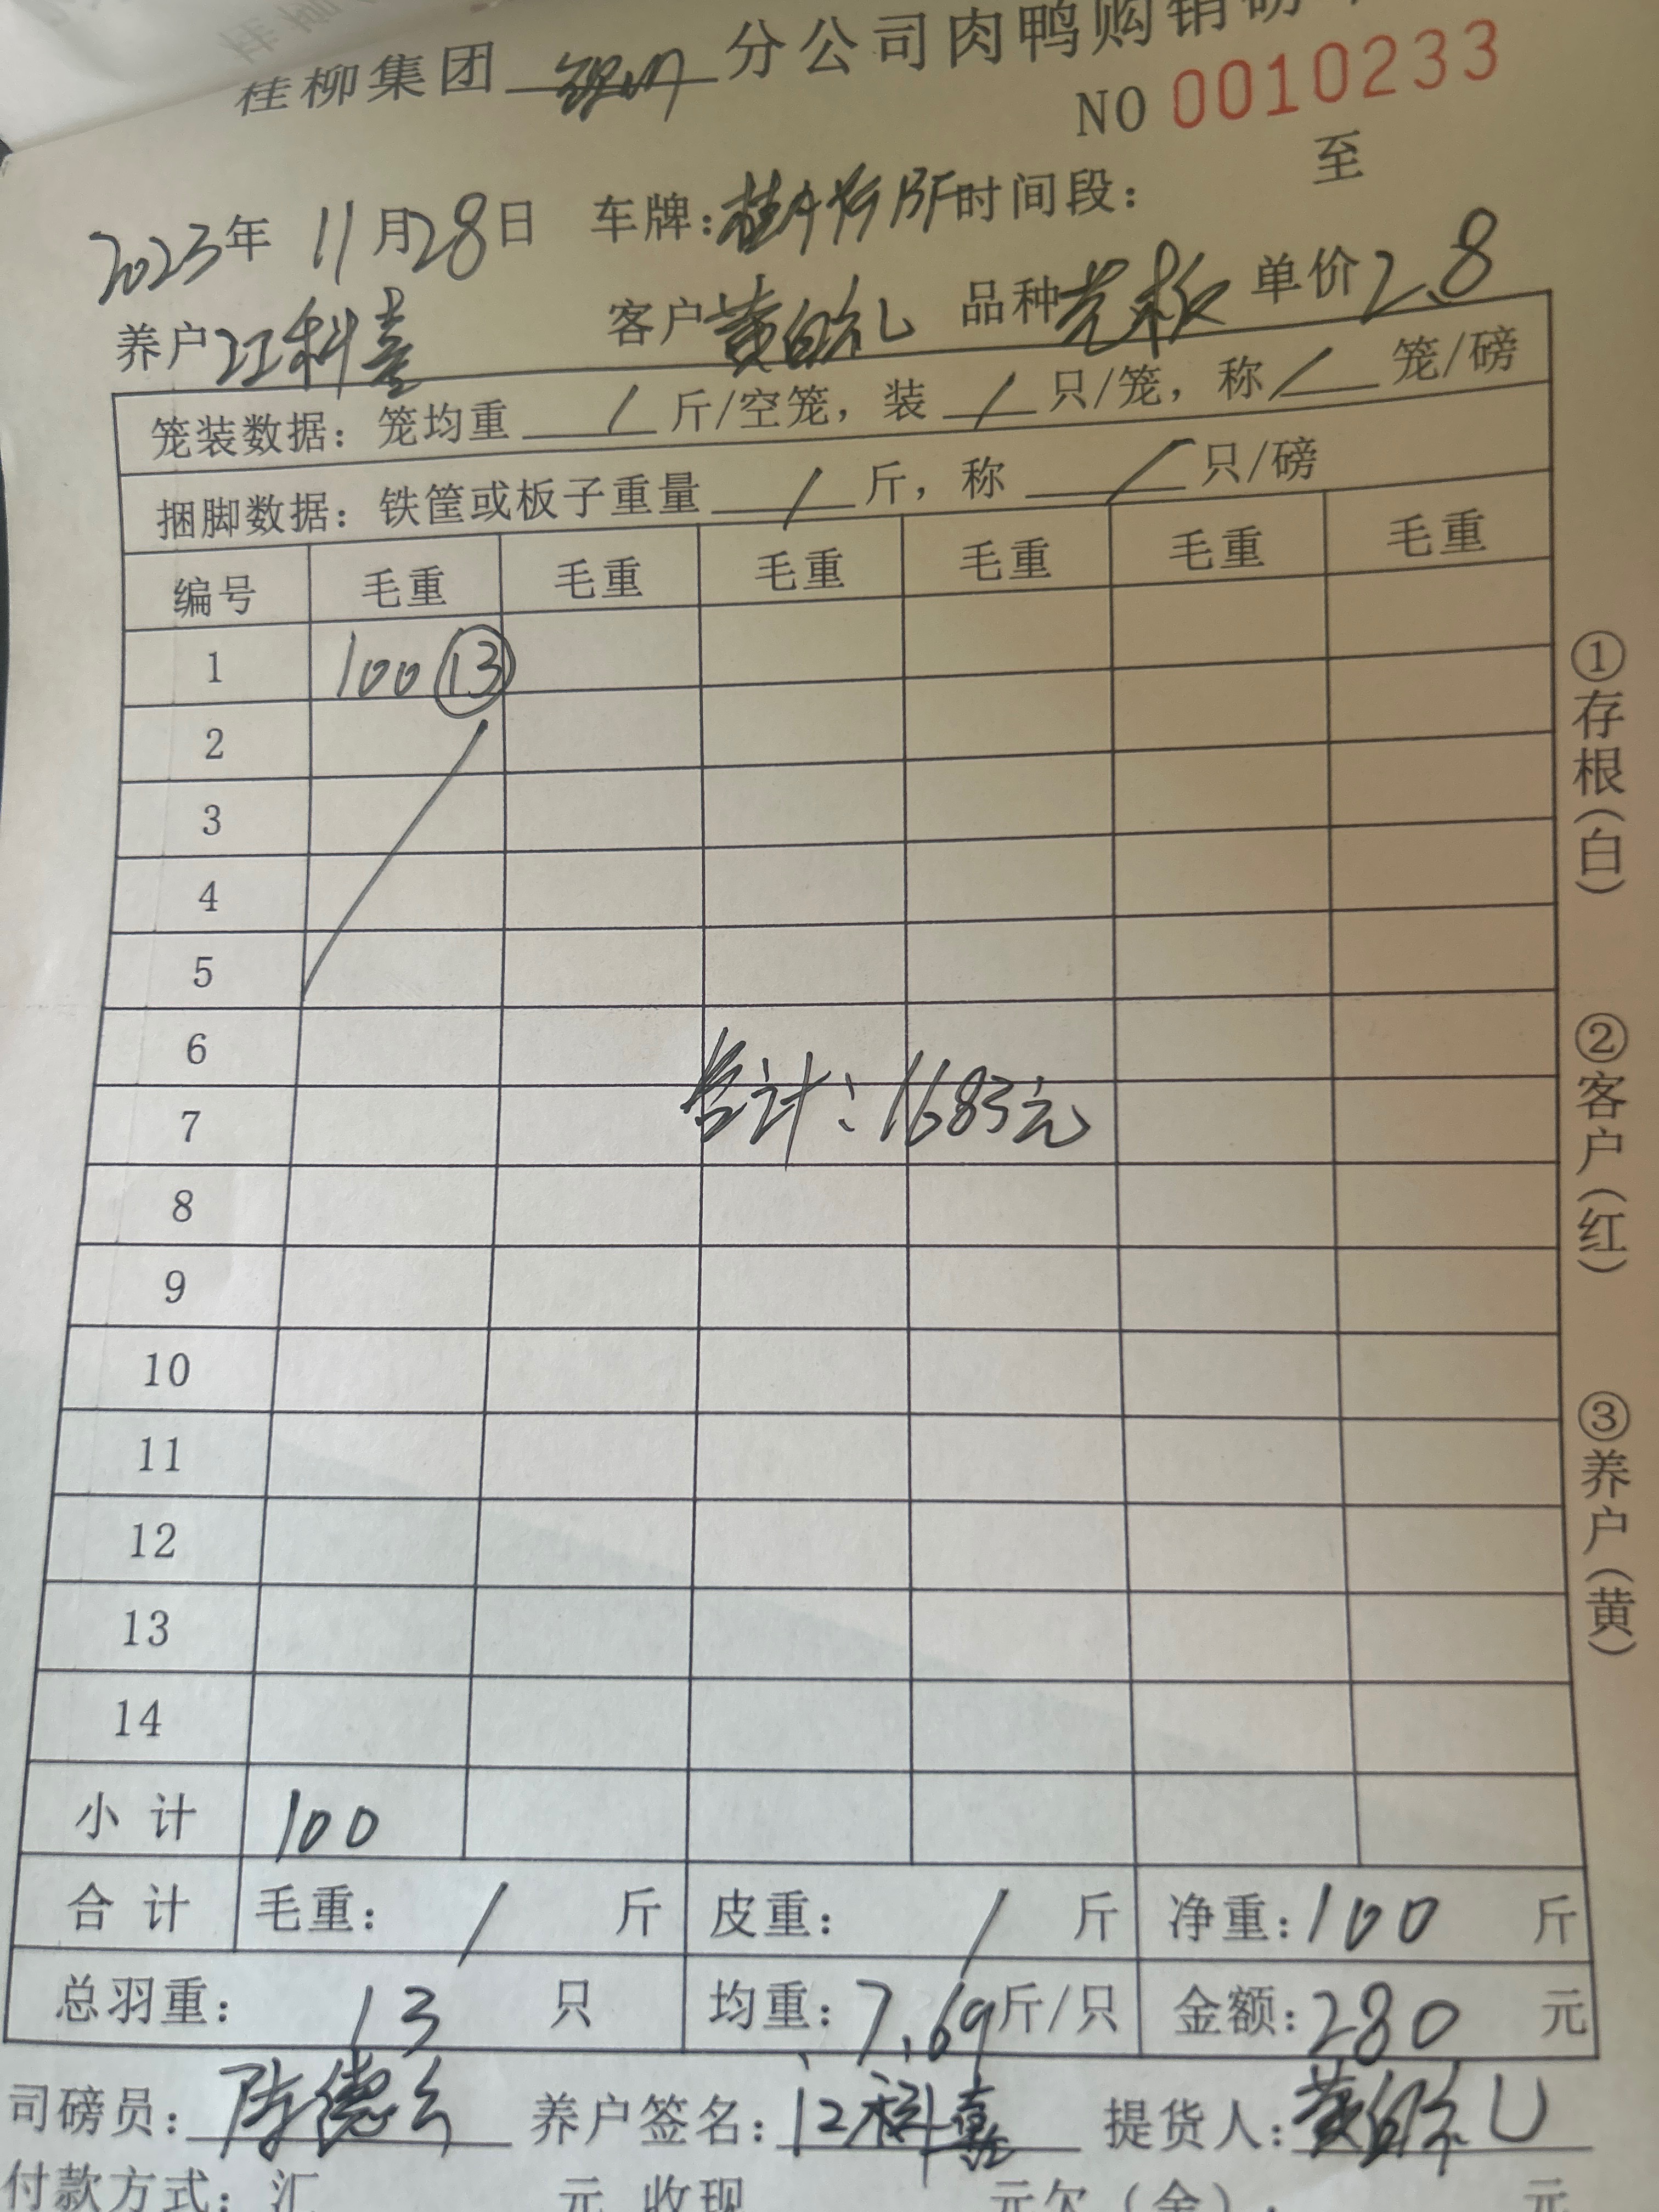 桂柳集团 分公司肉鸭购销磅
NO 0010233
2023年 11月28日 车牌: 时间段: 至
养户 江科嘉 客户 黄 品种 单价 2.8
笼装数据: 笼均重 / 斤/空笼, 装 / 只/笼, 称 / 笼/磅
捆脚数据: 铁筐或板子重量 / 斤, 称 / 只/磅
编号 毛重 毛重 毛重 毛重 毛重 毛重
1 100 ⑬
2
3
4
5
6
合计: 1683元
7
8
9
10
11
12
13
14
小计 100
合计 毛重: / 斤 皮重: / 斤 净重: 100 斤
总羽重: 13 只 均重: 7.69 斤/只 金额: 280 元
司磅员: 陈德 养户签名: 江科嘉 提货人: 黄
付款方式: 汇 元 收现 元欠(余): 元
①存根(白)
②客户(红)
③养户(黄)